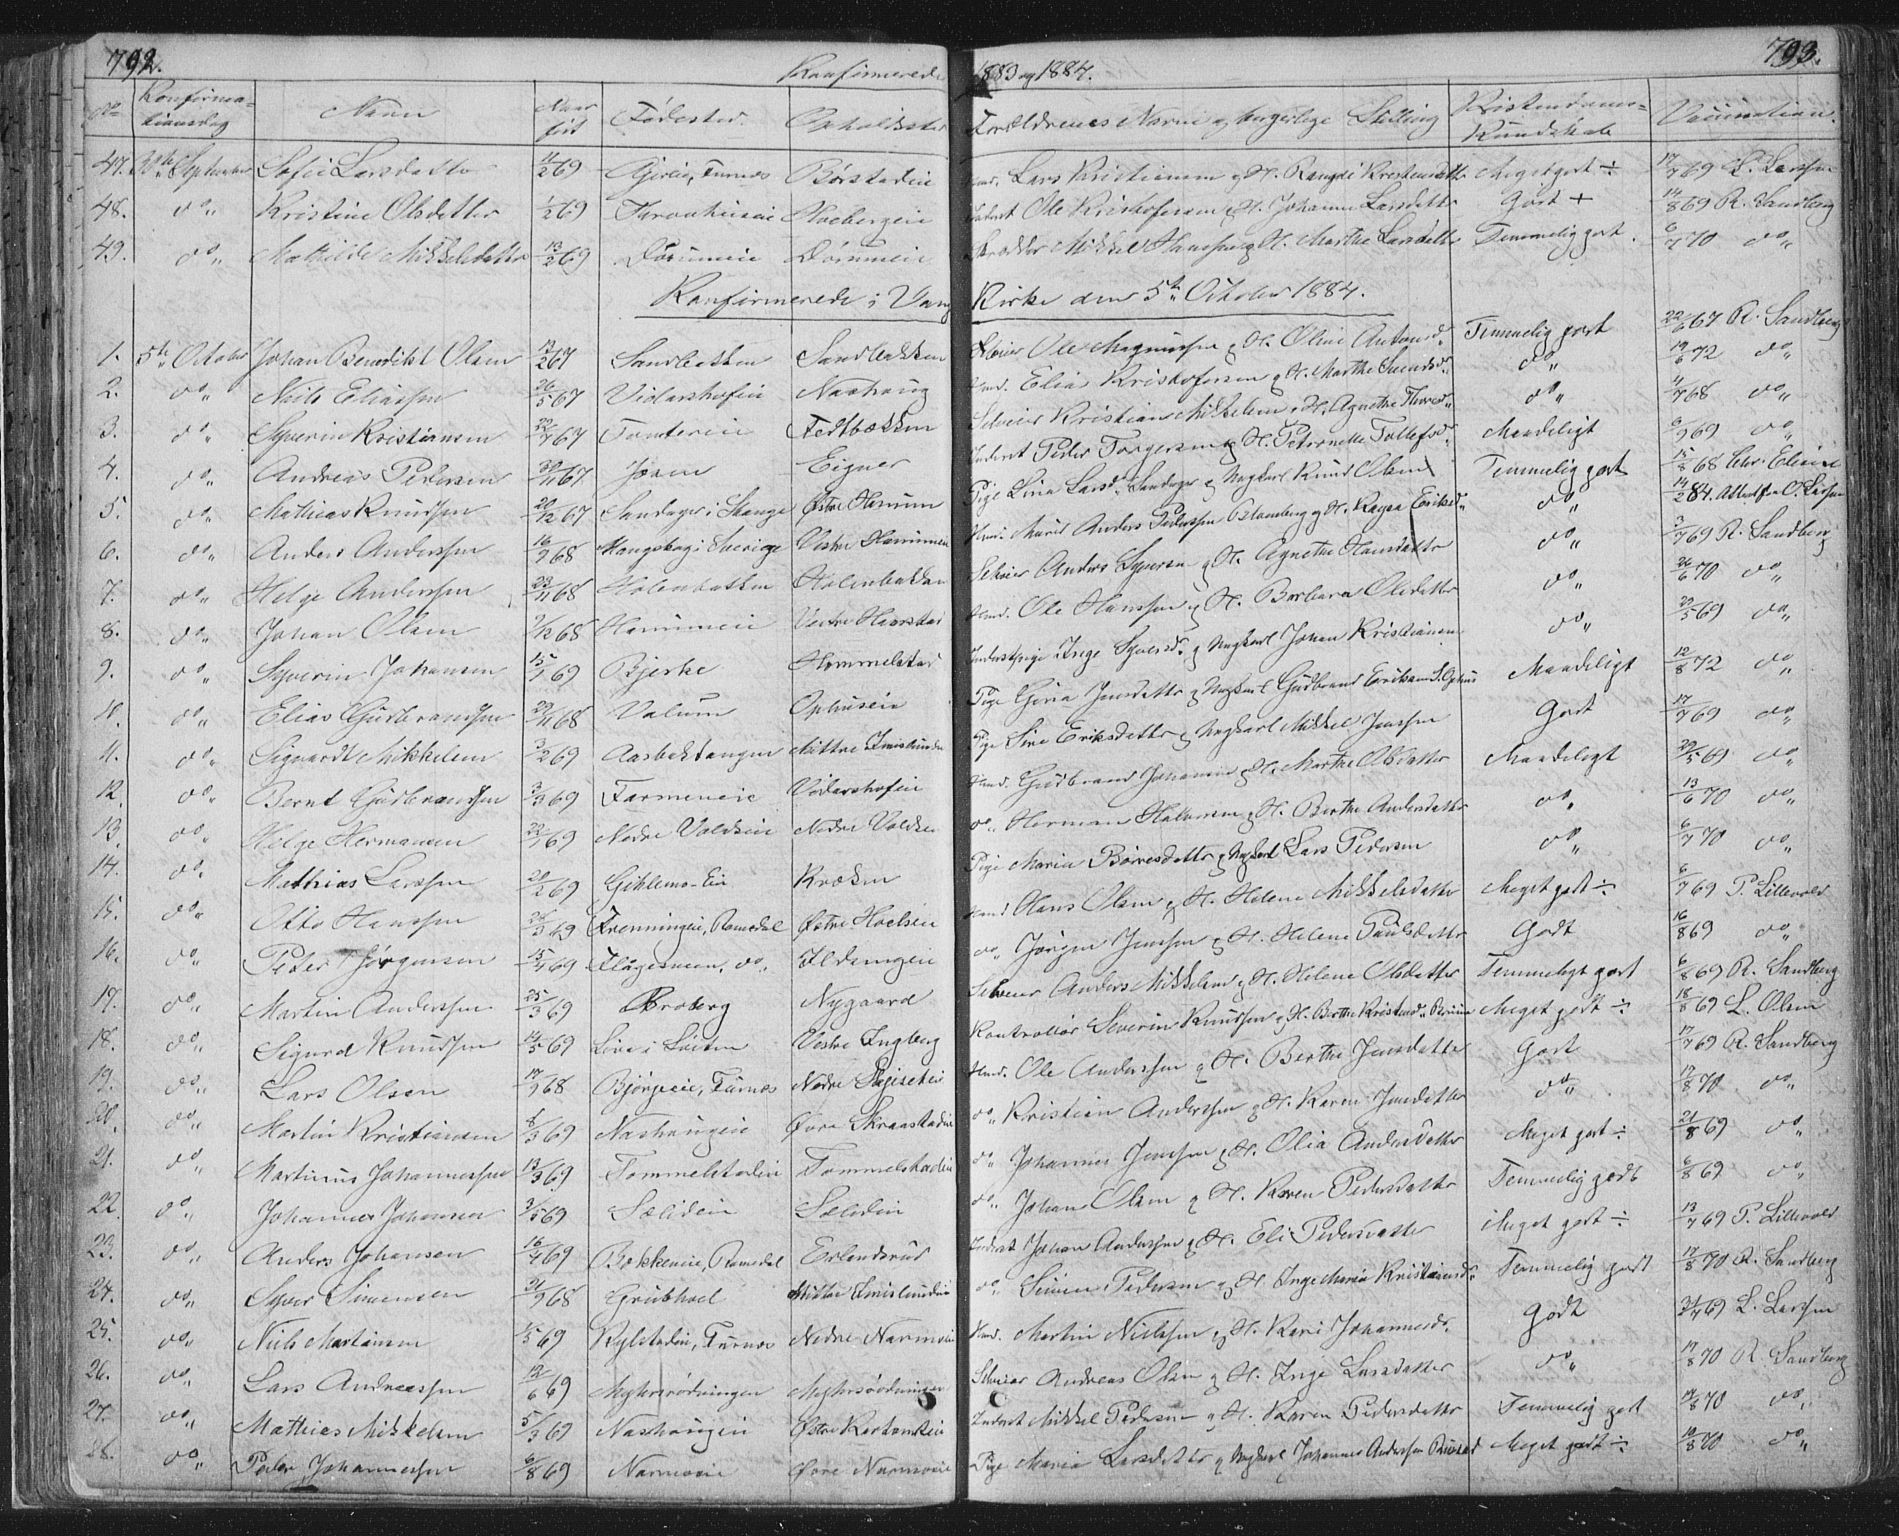 792.
Konfirmerede 1883 og 1884.
793.
No Konfirmationsdag Navn Naar født Fødested Opholdssted Forældrenes Navne og borgerlige Stilling Kristendoms-Kundskab Vaccination.
47. 30te September Sofie Larsdatter 11/2 69 Furnæs Børstadeie Hmd. Lars Kristiansen og H. Kristensdatter Meget godt ÷ 17/7 69 L. Larssen
48. do „ Kristine Olsdatter 1/2 69 Haebergeie Inderst Ole Kristofersen og H. Johanne Larsdatter Godt + 14/8 69 R. Sandberg
49. do „ Mathilde Mikkelsdatter 13/2 69 Dørumeie Dørumeie Skrædder Mikkel Hanssen og H. Marthe Larsdatter Temmelig godt. 6/7 70 do „
Konfirmerede i Vang Kirke den 5te Oktober 1884.
1. 5te Octobr Johan Benedikt Olsen 13/2 67 Sandbakken Sandbakken Selveier Ole Magnussen og H. Oline Antonsd. Temmelig godt 22/6 67 R. Sandberg
2. do „ Nils Eliassen 26/5 67 Vidarshofeie Nashaug Hmd. Elias Kristofersen og H. Marthe do „ 19/6 72 do „
3. do „ Syverin Kristiansen 22/7 67 Tomtereie Fedtbækken Selveier Kristian Mikkelsen og H. Agnethe do „ 4/7 68 do „
4. do „ Andreas Pedersen 30/11 67 Eigner Inderst Peder Torgersen og H. Petronelle Tollefsd. Maadeligt 6/9 69 do „
5. do „ Mathias Knudsen 20/12 67 Sandager i Stange Østre Hommen Pige Lina Larsd. Sandager og Ungkarl Knud Olsen Temmelig godt 15/8 68 Chr.
6. do „ Anders Anderssen 16/9 68 i Sverige Vestre Hommen Anders Pederssen og H. Kaysa Eriksd. do „ 14/2 84. Attest fra O. Larsen
7. do „ Helge Anderssen 23/11 68 Holenbakken Holenbakken Selveier Anders Syversen og H. Agnethe Hansdatter do „ 3/7 69 R. Sandberg
8. do „ Johan Olsen 7/12 68 Vestre Haarstad Hmd. Ole Hanssen og H. Barbara Olsdatter do „ 26/6 70 do „
9. do „ Syverin Johansen 15/1 69 Bjerke Hommelstad Inderstpige Inge Syversd. og Ungkarl Johan Kristiansen do „ 20/5 69 do „
10. do „ Elias Gudbrandsen 29/11 68 Valum Ophuseie Pige Gina Jensdatter og Ungkarl Gudbrand Eriksen Maadeligt 12/8 72 do „
11. do „ Sigvardt Mikkelsen 3/2 69 Aasbaktangen Mittre Pige Sine Eriksdatter og Ungkarl Mikkel Jenssen Godt 17/7 69 do „
12. do „ Bernt Gudbrandsen 3/3 69 Farmeneie Vidarshofeie Hmd. Gudbrand Johansen og H. Marthe Olsdatter Maadeligt 20/5 69 do „
13. do „ Helge Hermansen 22/1 69 Nedre Voldseie Nedre Voldseie do „ Herman Halvorsen og H. Berthe Andersdatter do „ 13/6 70 do „
14. do. Mathias Larssen 20/2 69 Gihlems-Eie Kræken Pige Maria Børresdatter og Ungkarl Lars Pedersen do „ 6/7 70 do „
15. do „ Otto Hanssen 26/3 69 Frenningeie, Romedal Østre Hoelseie Hmd Hans Olsen og H. Helene Mikkelsdatter Meget godt ÷ 6/7 69 P. Lillevold
16. do „ Peder Jørgensen 15/4 69 Flagesveen, do „ Ildsengeie do „ Jørgen Jenssen og H. Helene Paulsdatter Godt 16/8 69 do „
17. do „ Martin Anderssen 25/3 69 Broberg Nygaard Selveier Anders Mikkelsen og H. Helene Olsdatter Temmeligt godt 6/8 69 R. Sandberg
18. do „ Sigurd Knudssen 14/5 69 Lien i Løiten Vestre Ingberg Kontrollør Severin Knudssen og H. Berthe Kristensd. Meget godt ÷ 18/8 69 L. Olsen
19. do „ Lars Olsen 17/9 68 Bjørgeeie, Furnæs Nedre Hmd. Ole Anderssen og H. Berthe Jensdatter Godt 17/7 69 R. Sandberg
20. do „ Martin Kristiansen 8/3 69 Nashougeie Øvre Skraastadeie do „ Kristian Anderssen og H. Karen Jensdatter do „ 17/8 70 do „
21. do „ Martinus Johannessen 13/3 69 Tommelstadeie Tommelstadeie do „ Johannes Jenssen og H. Olia Andersdatter Meget godt ÷ 21/8 69 do „
22. do „ Johannes Johansen 3/5 69 Sælideie Sælideie do „ Johan Olsen og H. Karen Pedersdatter Temmelig godt 6/8 69 do „
23. do „ Anders Johansen 16/4 69 Bækkeneie, Romedal Erlandsrud Inderst Johan Anderssen og H. Eli Pedersdatter Meget godt ÷ 13/7 69 P. Lillevold
24. do „ Syver Simensen 21/9 68 Grubhoel Mittre do „ Simen Pedersen og H. Inge Maria Kristiansd. Temmelig godt 17/8 70 R. Sandberg
25. do „ Nils Martinsen 1/5 69 Kylstadeie, Furnæs Nedre Narmoeie Hmd. Martin Nielssen og H. Kari Johannesd. Godt 31/7 69 L. Larssen
26. do „ Lars Andreassen 12/6 69 Myhrsrødningen Myhrsrødningen Selveier Andreas Olsen og H. Inge Larsdatter do „ 17/8 70 R. Sandberg
27. do „ Mathias Mikkelsen 5/3 69 Nashougeie Østre Inderst Mikkel Pedersen og H. Karen Pedersdatter Temmelig godt 17/8 70 do „
28. do „ Peder Johannessen 6/8 69 Narmoeie Øvre Narmoeie Pige Maria Larsdatter og Ungkarl Johannes Anderssen Meget godt ÷ 10/8 70 do „